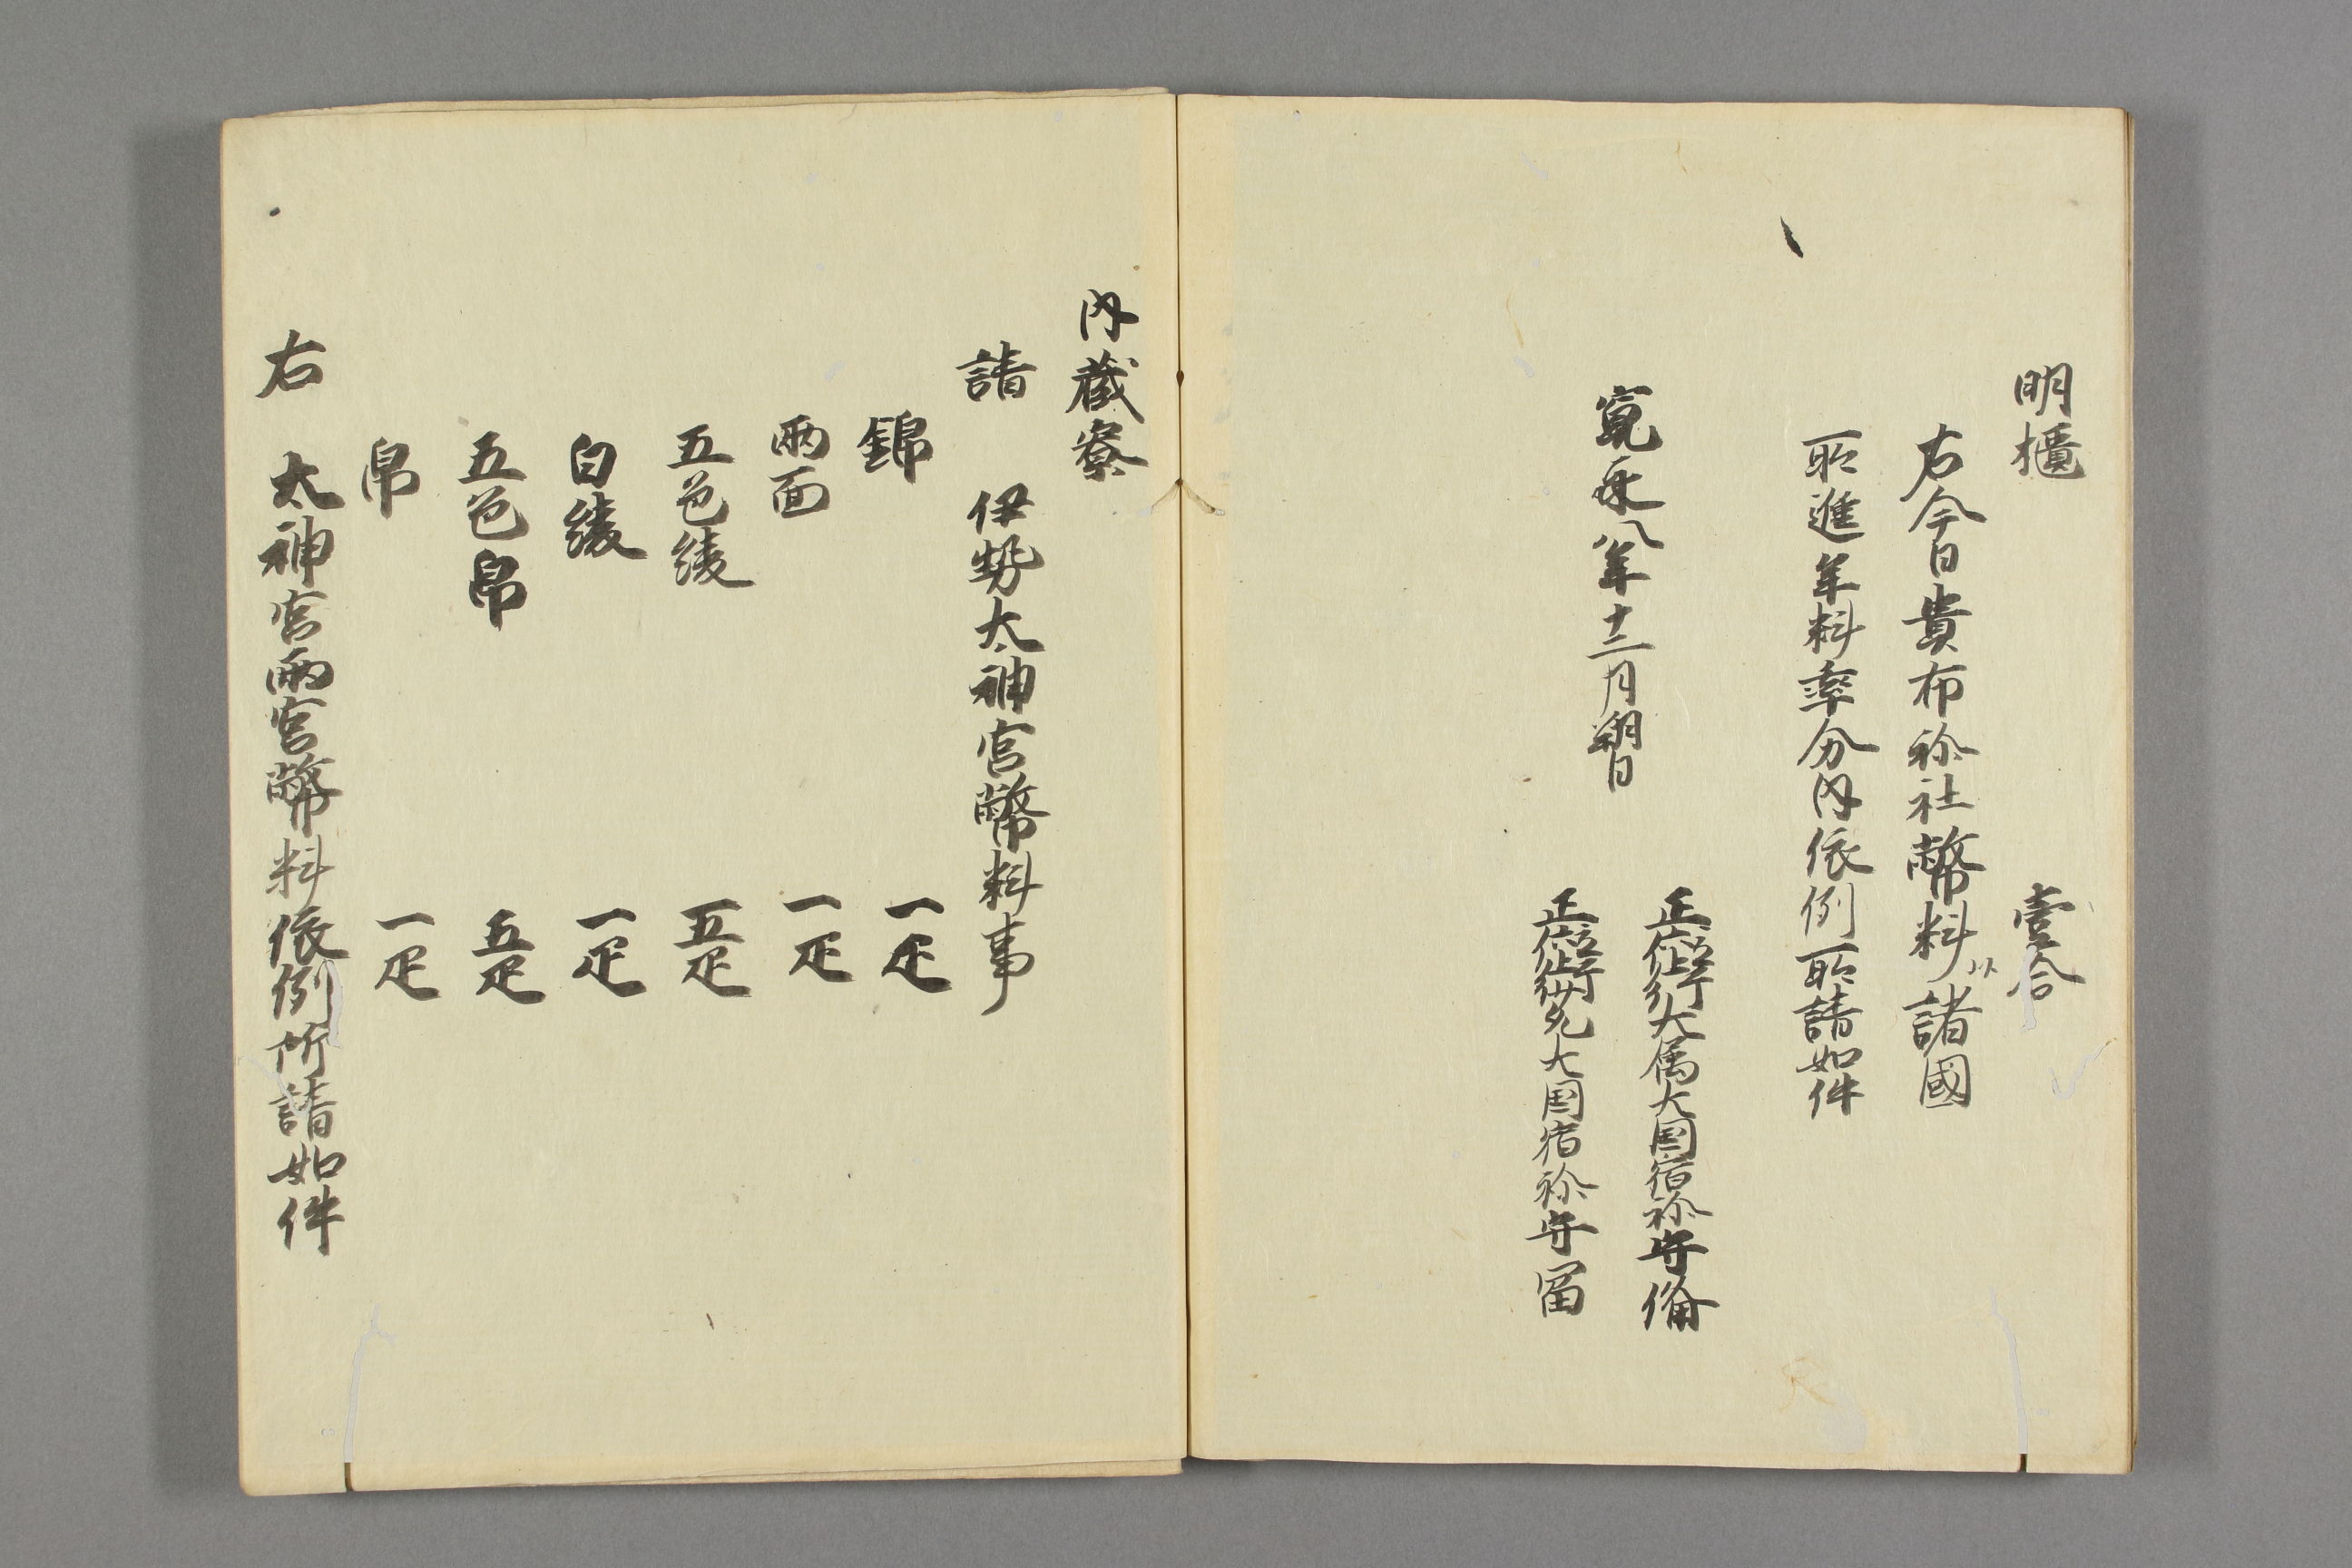 明櫃 壹合
右今日貴布祢社幣料以諸國
所進年料率分内依例所請如件
寛永八年十二月朔日
正六位上行大属大国宿祢守備
正六位上行少允大国宿祢守冨
内蔵寮
請 伊勢太神宮幣料事
錦 一疋
両面 一疋
五色綾 五疋
白綾 一疋
五色帛 五疋
帛 一疋
右 太神宮両宮幣料依例所請如件